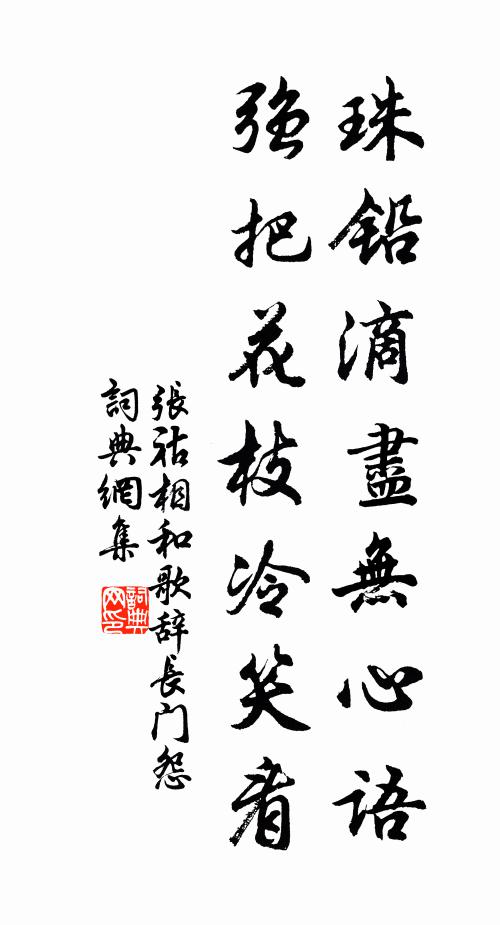 珠鉛滴盡無心語
強把花枝冷笑看
張祜相和歌辞長门怨
詞典網集
詞典网印